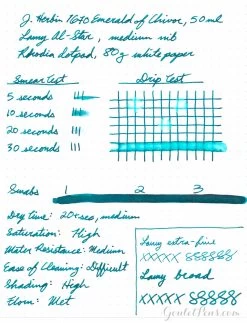 J. Herbin 1670 Emerald of Chivor, 50 ml
Lamy Al-Star, medium nib
Rhodia Dotpad, 80g white paper
Smear test
Drip test
5 seconds
10 seconds
20 seconds
30 seconds
Swabs 1 2 3
Dry time: 20 secs, medium
Saturation: High
Water Resistance: Medium
Ease of Cleaning: Difficult
Shading: High
Flow: Wet
Lamy extra-fine
xxxxx 888888
Lamy broad
xxxxx 888888
GouletPens.com